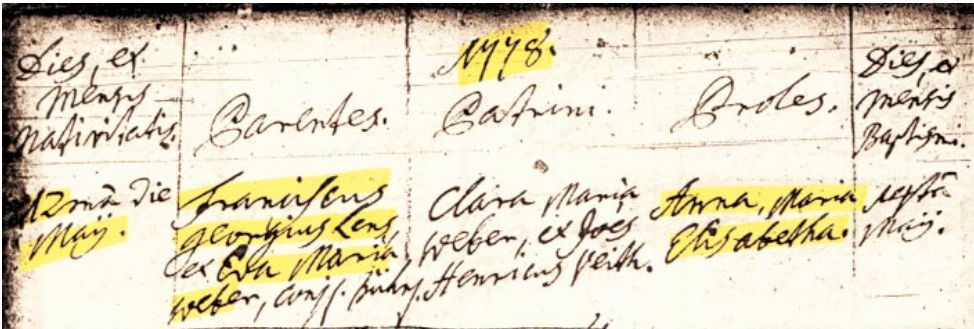 Dies, et
Mensis
Nativitatis.
Parentes.
1778.
Patrini.
Proles.
Dies, et
Mensis
Baptismi.
12mâ Die
Maÿ.
Franciscus
Georgius Lens,
et Eva Maria
Weber, conj.
Clara Maria
Weber, et Joês
Henricus Veith.
Anna, Maria
Elisabetha.
Maÿ.